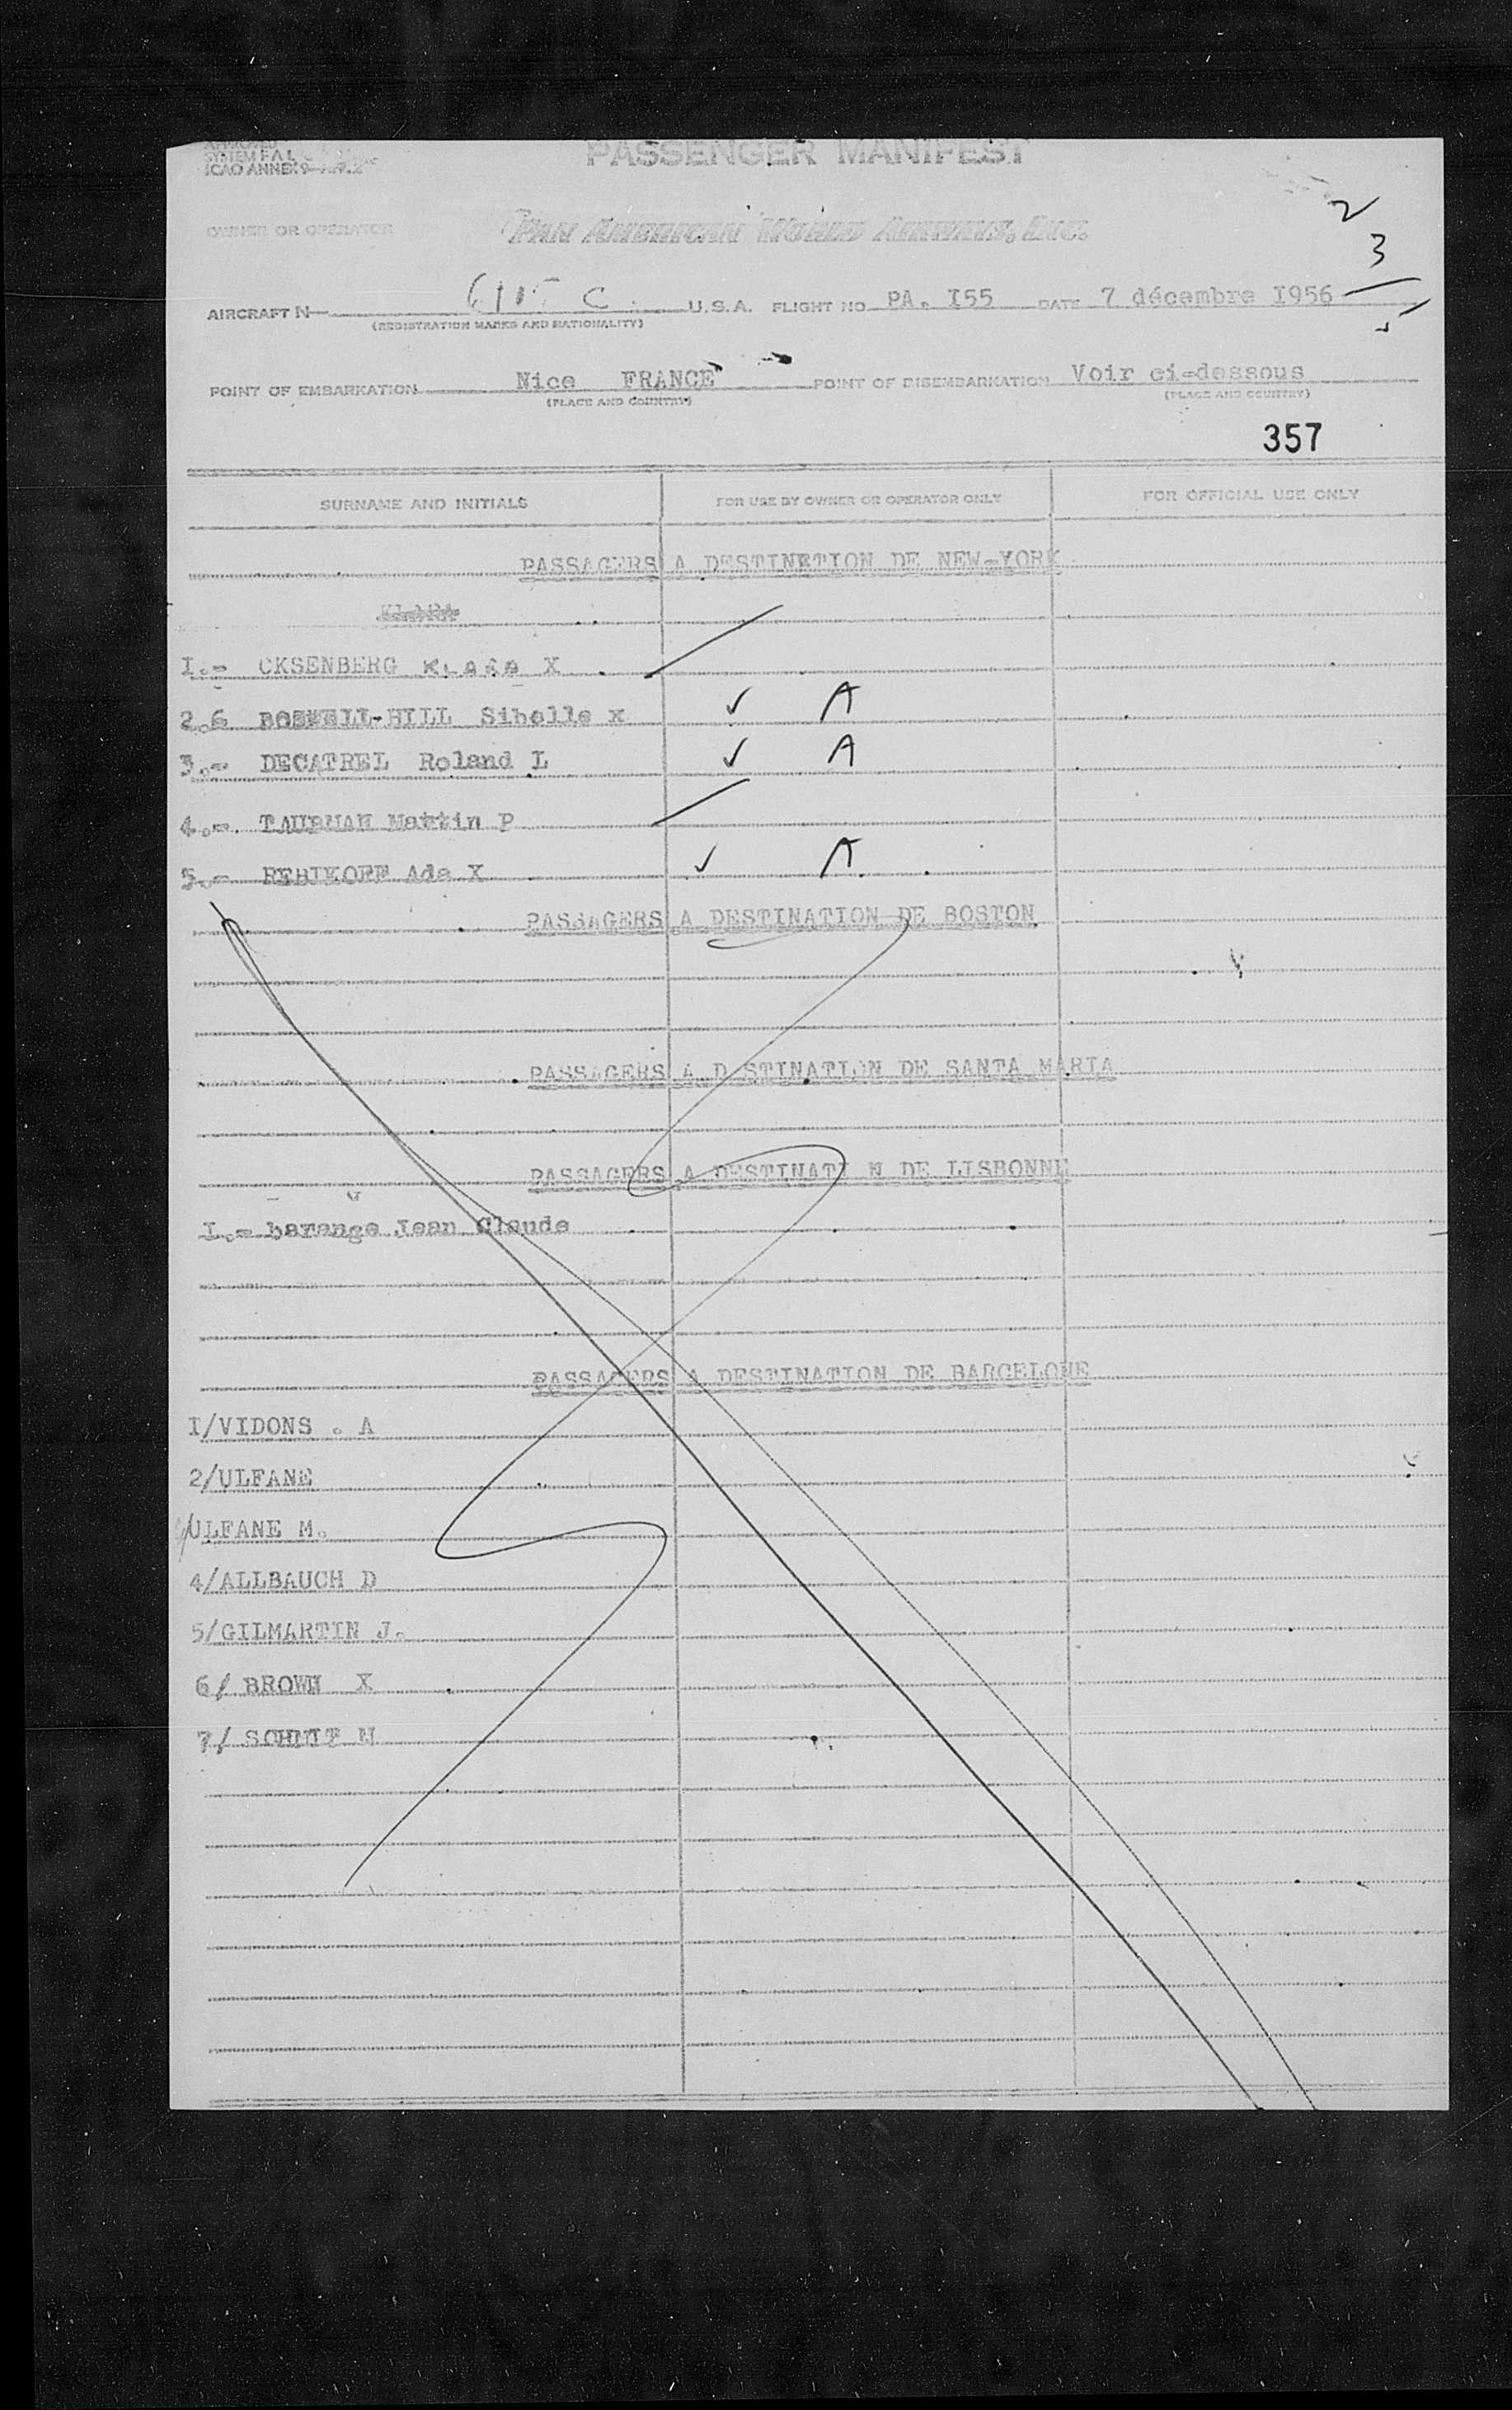 APPROVED
PASSENGER MANIFEST
SYSTEM F.A.L.
ICAO ANNEX 9
OWNER OR OPERATOR PAN AMERICAN WORLD AIRWAYS, INC.
2
3
5
AIRCRAFT N C. U.S.A. FLIGHT NO PA. I55 DATE 7 décembre I956
(REGISTRATION MARKS AND NATIONALITY)
POINT OF EMBARKATION Nice FRANCE POINT OF DISEMBARKATION Voir ci-dessous
(PLACE AND COUNTRY) (PLACE AND COUNTRY)
357
SURNAME AND INITIALS FOR USE BY OWNER OR OPERATOR ONLY FOR OFFICIAL USE ONLY
PASSAGERS A DESTINETION DE NEW-YORK
I.- OKSENBERG KLARA X
2. BOSWELL-HILL Sibelle x ✓ A
3.- DECATREL Roland L ✓ A
4.- TAUBMAN Martin P
5.- REBIKOFF Ada X ✓ A
PASSAGERS A DESTINATION DE BOSTON
PASSAGERS A D STINATION DE SANTA MARIA
PASSAGERS A DESTINATI N DE LISBONNE
I.- Barange Jean Claude
PASSAGERS A DESTINATION DE BARCELONE
I/VIDONS . A
2/ULFANE
/ULFANE M.
4/ALLBAUCH D
5/GILMARTIN J.
6/ BROWN X
7/